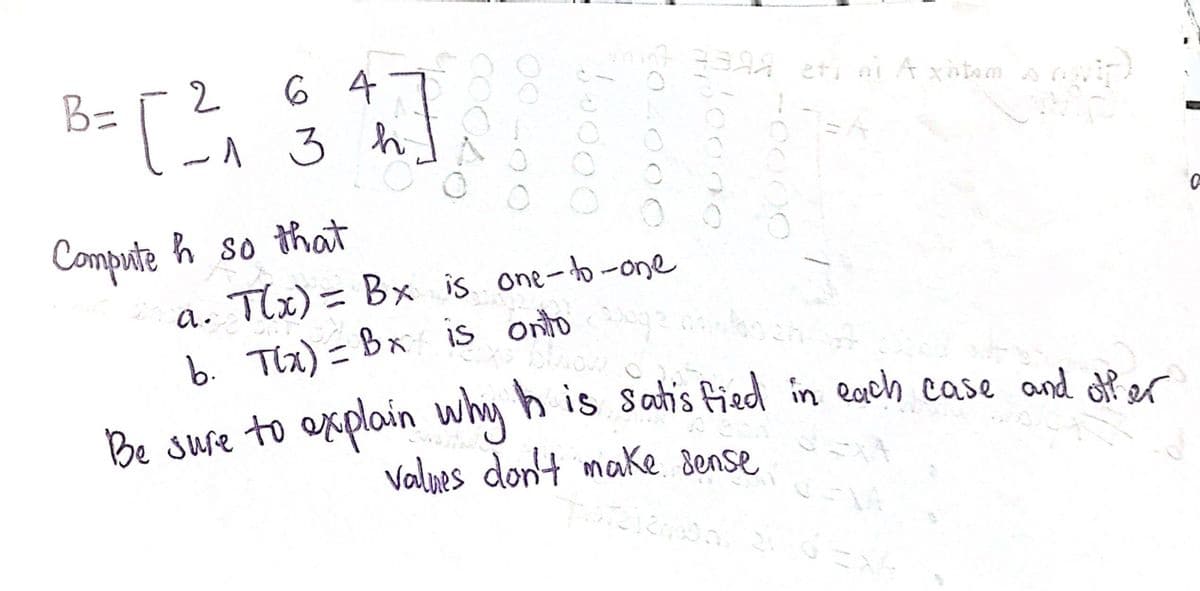 B= [ 2 6 4
-1 3 h ]
Compute h so that
a. T(x) = Bx is one-to-one
b. T(x) = Bx is onto
Be sure to explain why h is satisfied in each case and other
values don't make sense